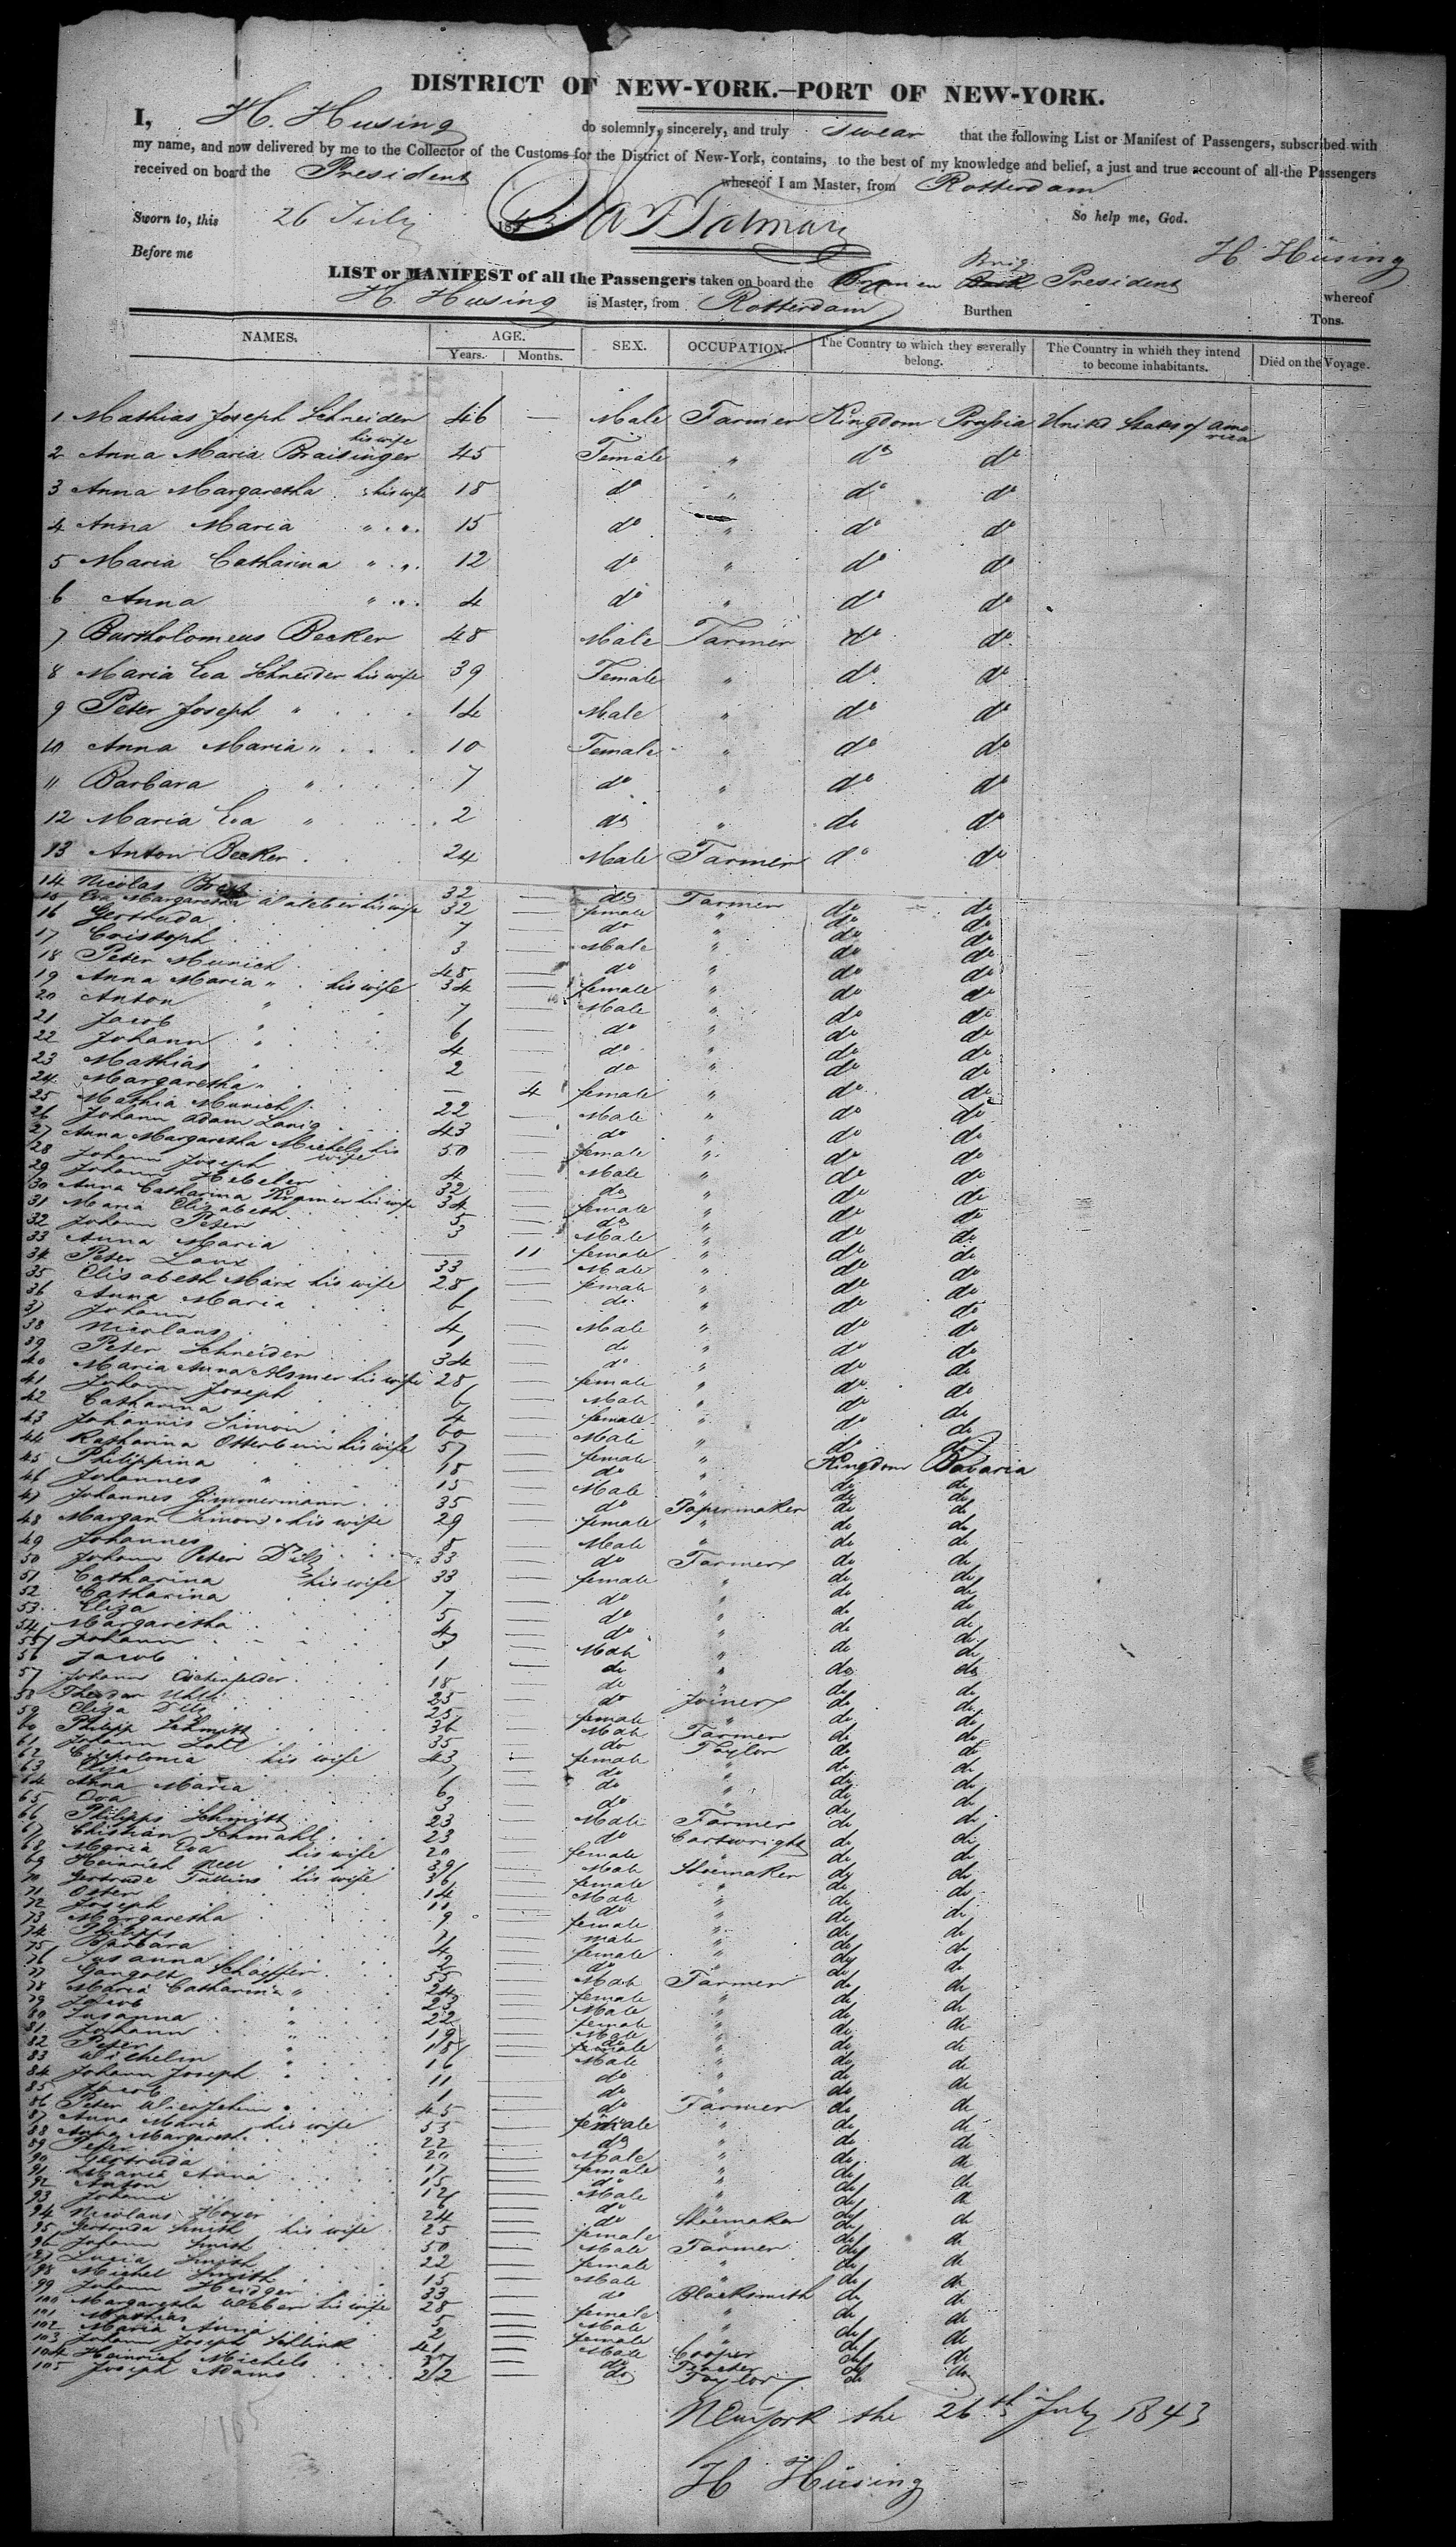 DISTRICT OF NEW-YORK.—PORT OF NEW-YORK.
I, H. Husing do solemnly, sincerely, and truly swear that the following List or Manifest of Passengers, subscribed with
my name, and now delivered by me to the Collector of the Customs for the District of New-York, contains, to the best of my knowledge and belief, a just and true account of all the Passengers
received on board the President whereof I am Master, from Rotterdam
Sworn to, this 26 July 1843 So help me, God.
Before me H. Hüsing
LIST or MANIFEST of all the Passengers taken on board the Bremen Brig President whereof
H. Husing is Master, from Rotterdam Burthen Tons.
NAMES. AGE. SEX. OCCUPATION. The Country to which they severally belong. The Country in which they intend to become inhabitants. Died on the Voyage.
Years. Months.
1 Mathias Joseph Schneider 46 — Male Farmer Kingdom Prussia United States of America
2 Anna Maria Braisinger his wife 45 Female " do do
3 Anna Margaretha " his wife 18 do " do do
4 Anna Maria " " 15 do " do do
5 Maria Catharina " " 12 do " do do
6 Anna " " 4 do " do do
7 Bartholomeus Becker 48 Male Farmer do do
8 Maria Eva Schneider his wife 39 Female " do do
9 Peter Joseph " 14 Male " do do
10 Anna Maria " 10 Female " do do
11 Barbara " 7 do " do do
12 Maria Eva " 2 do " do do
13 Anton Becker 24 Male Farmer do do
14 Nicolas 32 do Farmer do do
15 Eva Margaretha his wife 32 — female " do do
16 Gertruda 7 — do " do do
17 Cristoph 3 — Male " do do
18 Peter Munich 48 — do " do do
19 Anna Maria " his wife 34 — female " do do
20 Anton " 7 — Male " do do
21 Jacob " 6 — do " do do
22 Johann " 4 — do " do do
23 Mathias " 2 — do " do do
24 Margaretha " — 4 female " do do
25 Mathia Munich 22 — Male " do do
26 Johann Adam 43 — do " do do
27 Anna Margaretha Michels his wife 50 — female " do do
28 Johann Joseph 4 — Male " do do
29 Johann Hebeler 32 — do " do do
30 Anna Catharina his wife 34 — female " do do
31 Maria Elizabeth 5 — do " do do
32 Johann Peter 3 — Male " do do
33 Anna Maria — 11 female " do do
34 Peter Laux 33 — Male " do do
35 Elisabeth Marx his wife 28 — female " do do
36 Anna Maria 6 — do " do do
37 Johann 4 — Male " do do
38 Nicolaus 1 — do " do do
39 Peter Schneider 34 — do " do do
40 Maria Anna his wife 28 — female " do do
41 Johann Joseph 6 — Male " do do
42 Catharina 4 — female " do do
43 Johannis Simon 60 — Male " do do
44 Katharina Otterbein his wife 57 — female " Kingdom Bavaria
45 Philippina 18 — do " do do
46 Johannes " 15 — Male " do do
47 Johannes Zimmermann 35 — do Papermaker do do
48 Margar. Simon his wife 29 — female " do do
49 Johannes 8 — Male " do do
50 Johann Peter 33 — do Farmer do do
51 Catharina his wife 33 — female " do do
52 Catharina 7 — do " do do
53 Eliza 5 — do " do do
54 Margaretha 4 — do " do do
55 Johann 3 — Male " do do
56 Jacob 1 — do " do do
57 Johann 18 — do " do do
58 Theodor 25 — do Joiner do do
59 Eliza 25 — female " do do
60 Philipp Schmitt 36 — Male Farmer do do
61 Johann 35 — do Taylor do do
62 his wife 43 — female " do do
63 Elisa 7 — do " do do
64 Anna Maria 6 — do " do do
65 Eva 3 — do " do do
66 Philipps Schmitt 23 — Male Farmer do do
67 Christian Schmahl 23 — do Cartwright do do
68 Maria Eva his wife 20 — female " do do
69 Heinrich 39 — Male Shoemaker do do
70 Gertrude his wife 36 — female " do do
71 14 — Male " do do
72 Joseph 11 — do " do do
73 Margaretha 9 — female " do do
74 7 — male " do do
75 Barbara 4 — female " do do
76 Susanna 2 — do " do do
77 Schäffer 55 — Male Farmer do do
78 Maria Catharina " 24 — female " do do
79 Jacob 23 — Male " do do
80 Susanna " 22 — female " do do
81 Johann " 19 — Male " do do
82 Peter " 18 — " do do
83 Wilhelm " 16 — Male " do do
84 Johann Joseph 11 — do " do do
85 Jacob 1 — do " do do
86 Peter 45 — do Farmer do do
87 Anna Maria his wife 53 — female " do do
88 Anna Margareth. 22 — do " do do
89 Peter 20 — Male " do do
90 Gertruda 17 — female " do do
91 Maria Anna 15 — do " do do
92 Anton 12 — Male " do do
93 Johann 6 — do " do do
94 Nicolaus Hoyer 24 — do Shoemaker do do
95 Gertruda Smith his wife 25 — female " do do
96 Johann Smith 50 — Male Farmer do do
97 Lucia Smith 22 — female " do do
98 Michel Smith 15 — Male " do do
99 Johann Heidger 33 — do Blacksmith do do
100 Margaretha Weber his wife 28 — female " do do
101 Mathias 5 — Male " do do
102 Maria Anna 2 — female " do do
103 Johann Joseph Schlink 41 — Male Cooper do do
104 Heinrich Michels 37 — do do do
105 Joseph Adams 22 — do Taylor do do
165
Newyork the 26th July 1843
H Hüsing